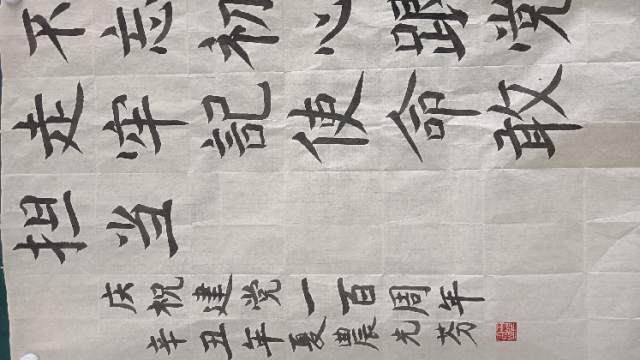 不忘初心跟党
走牢記使命敢
担当
庆祝建党一百周年
辛丑年夏農光芬